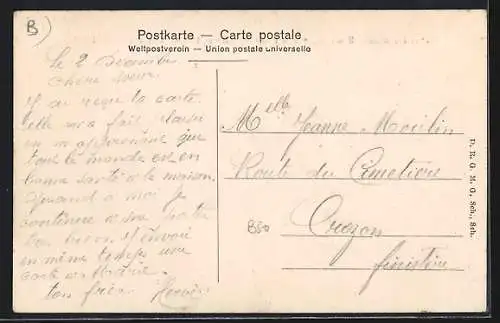 B
Postkarte – Carte postale
Weltpostverein – Union postale universelle
le 2 Decembre
Chère soeur
J'ai reçu ta carte
elle m'a fait plaisir
en m'apprenant que
tout le monde est en
bonne santé à la maison.
Quand à moi je
continue
J'envoie
en même temps une
carte à Marie.
ton frère Hervé
Melle Jeanne
Route du Cimetière
Crozon
finistère
D. R. G. M. G. Sch., Sch.